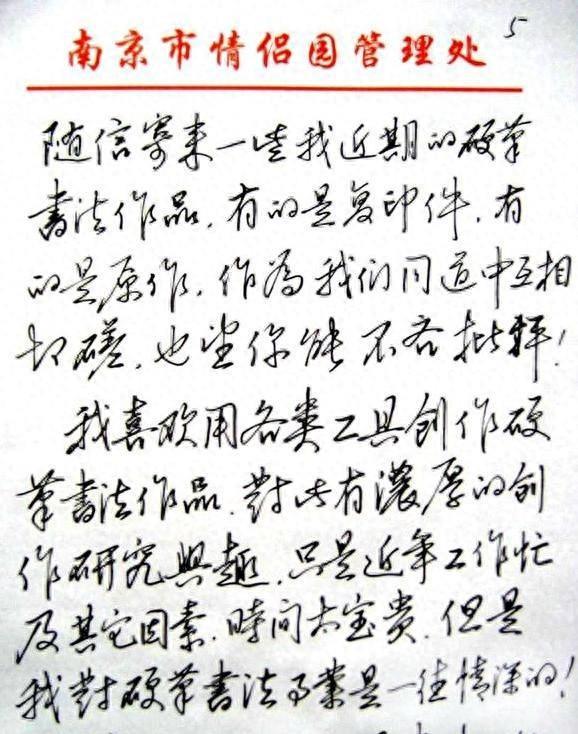 5
南京市情侣园管理处
随信寄来一些我近期的硬笔
書法作品,有的是复印件,有
的是原作,作為我们同道中互相
切磋,也望你能不吝批評!
我喜欢用各类工具创作硬
筆書法作品,對此有濃厚的创
作研究興趣,只是近年工作忙
及其它因素,時间太宝贵,但是
我對硬筆書法事業是一往情深的!